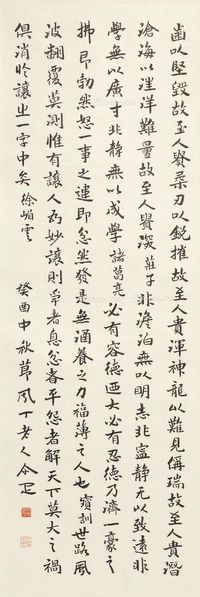 齒以堅毀故至人貴柔刃以銳摧故至人貴渾神龍以難見稱瑞故至人貴潛
滄海以汪洋難量故至人貴深莊子非澹泊無以明志非寧靜无以致遠非
學無以廣才非靜無以成學諸葛亮必有容德迺大必有忍德乃濟一毫之
拂即勃然怒一事之違即忿然發是無涵養之力福薄之人也寶訓世路風
波翻覆莫測惟有讓人為妙讓則爭者息忿者平怨者解天下莫大之禍
俱消於讓之一字中矣徐媚雲
癸酉中秋節風丁老人